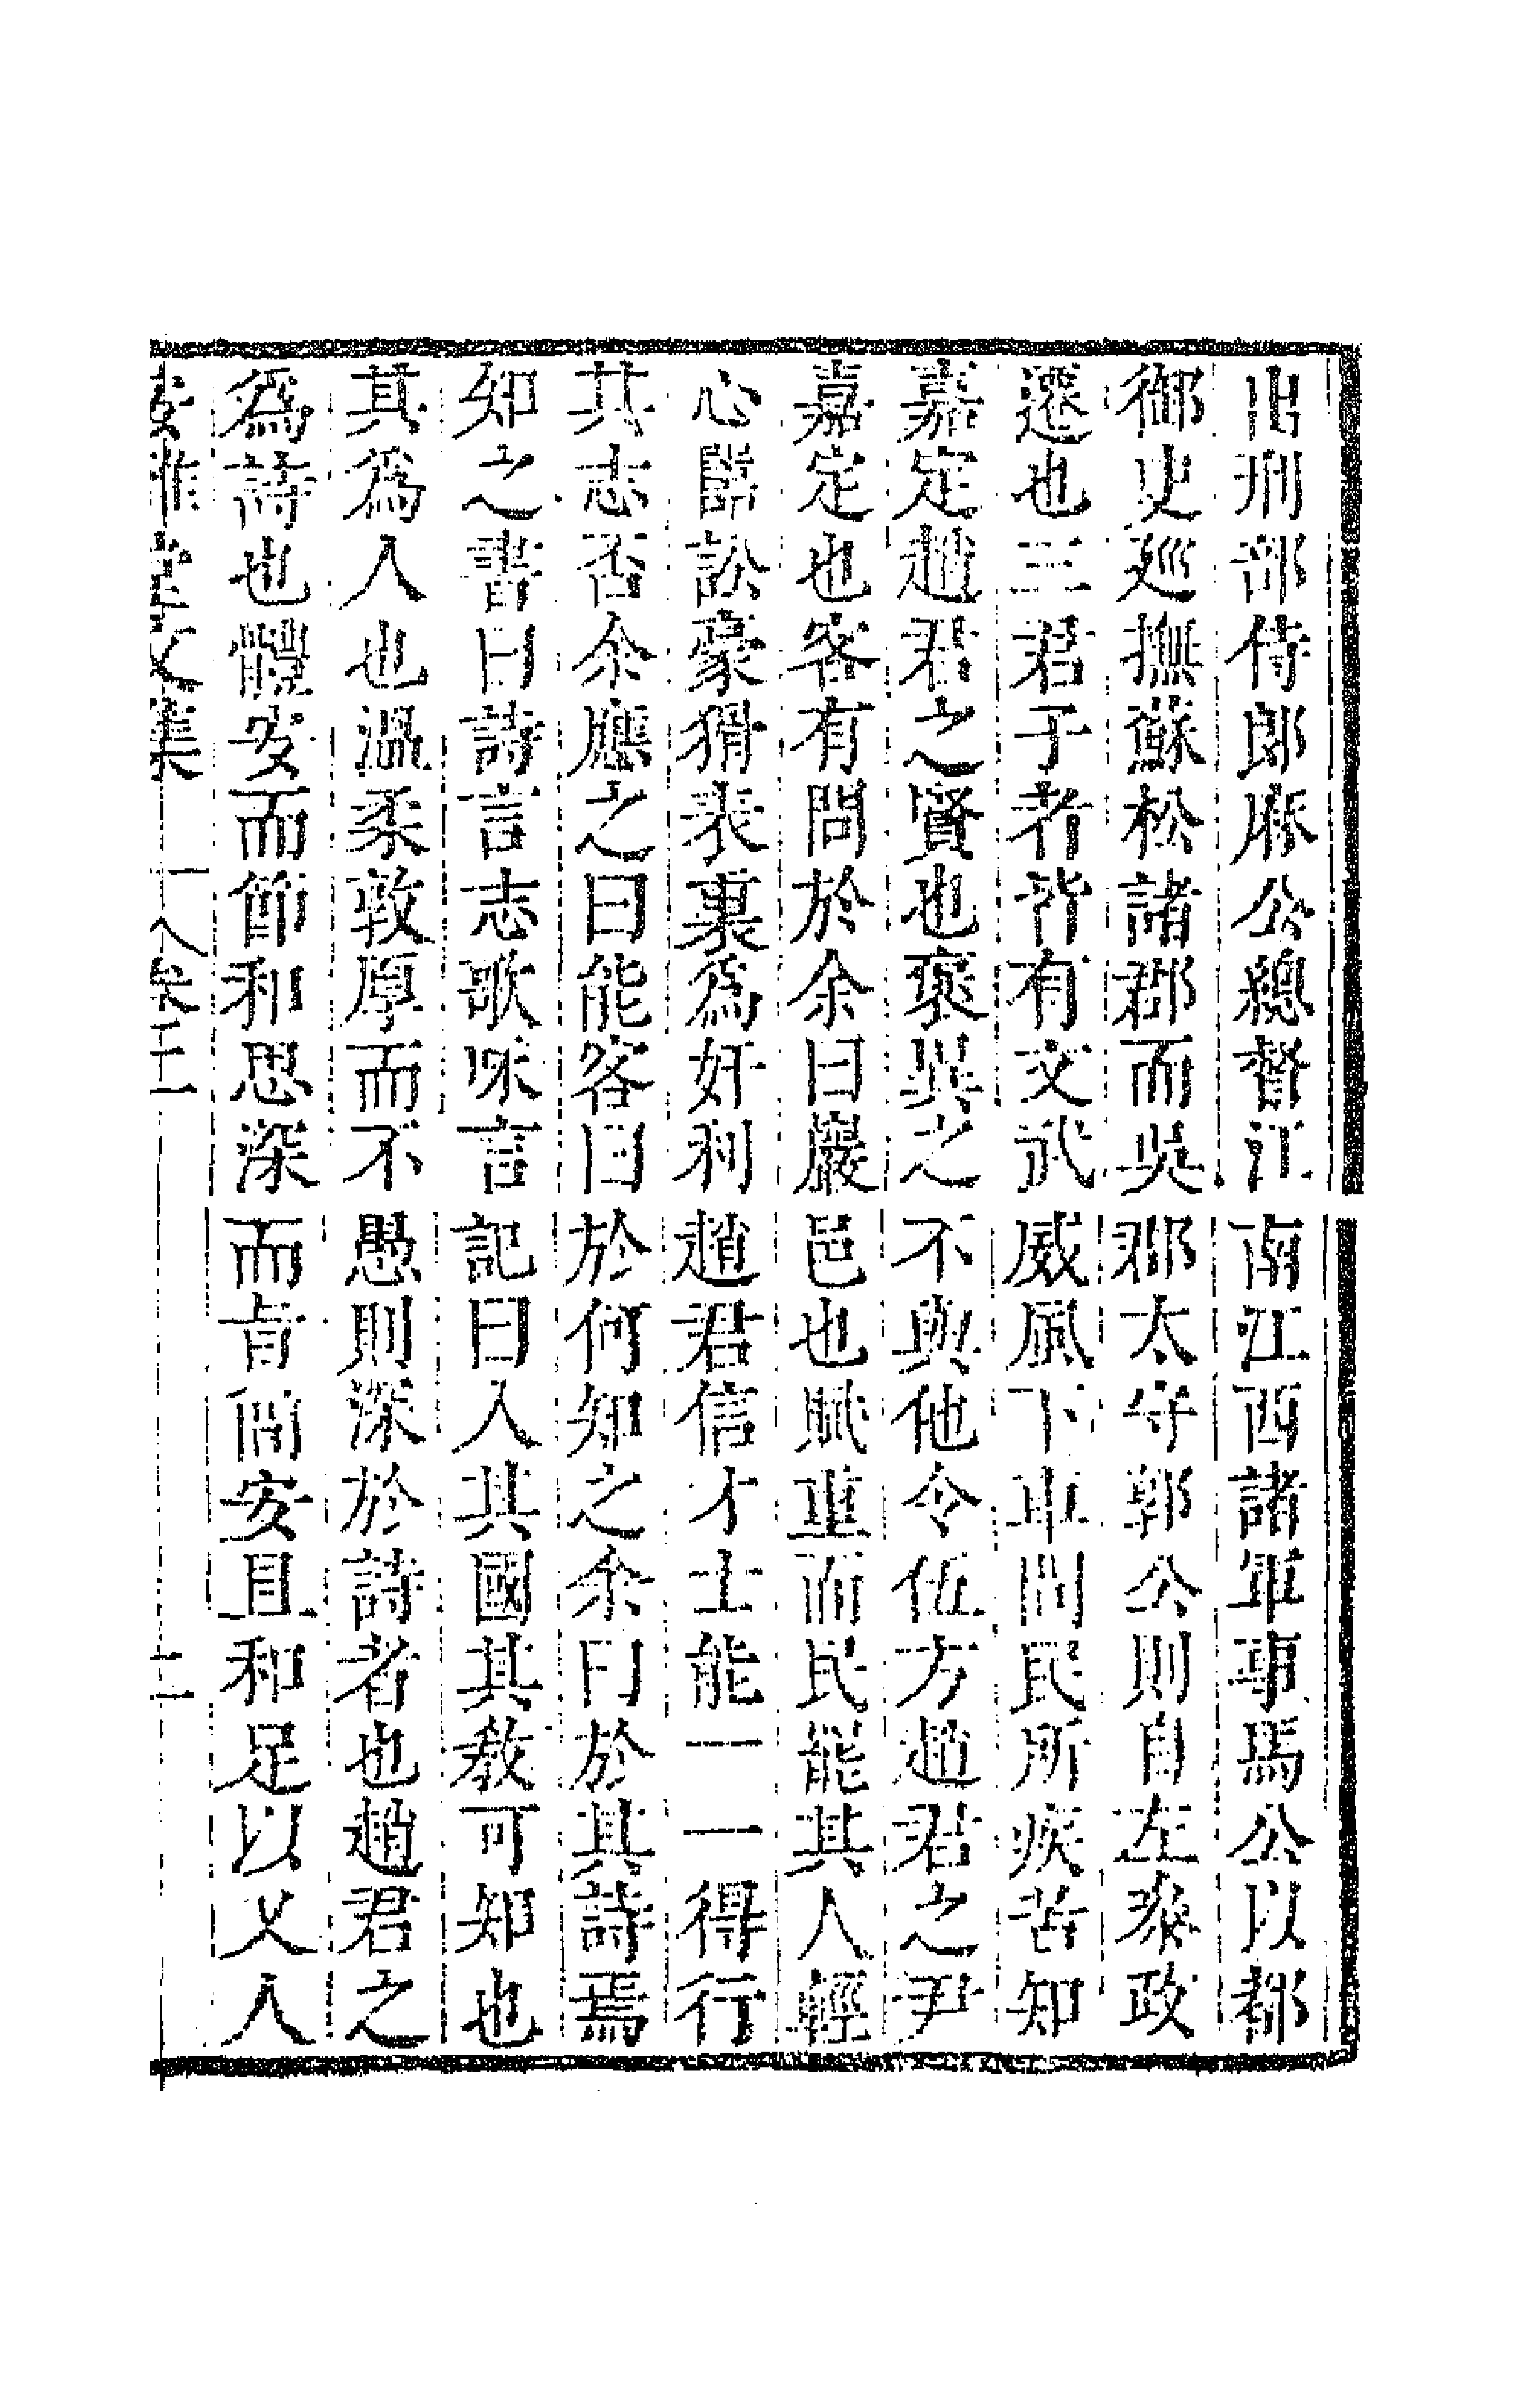 出刑部侍郎麻公總督江南江西諸軍事馬公以都
御史廵撫蘇松諸郡而吳郡太守郭公則自左叅政
遷也三君子者皆有文武威風下車問民所疾苦知
嘉定趙君之賢也褒異之不與他令伍方趙君之尹
嘉定也客有問於余曰巖邑也賦重而民能其人輕
心嚚訟豪猾表裏為奸利趙君信才士能一一得行
其志否余應之曰能客曰於何知之余曰於其詩焉
知之書曰詩言志歌咏言記曰入其國其教可知也
其為人也溫柔敦厚而不愚則深於詩者也趙君之
為詩也體安而節和思深而旨簡安且和足以乂人
安雅堂文集 卷二 十二